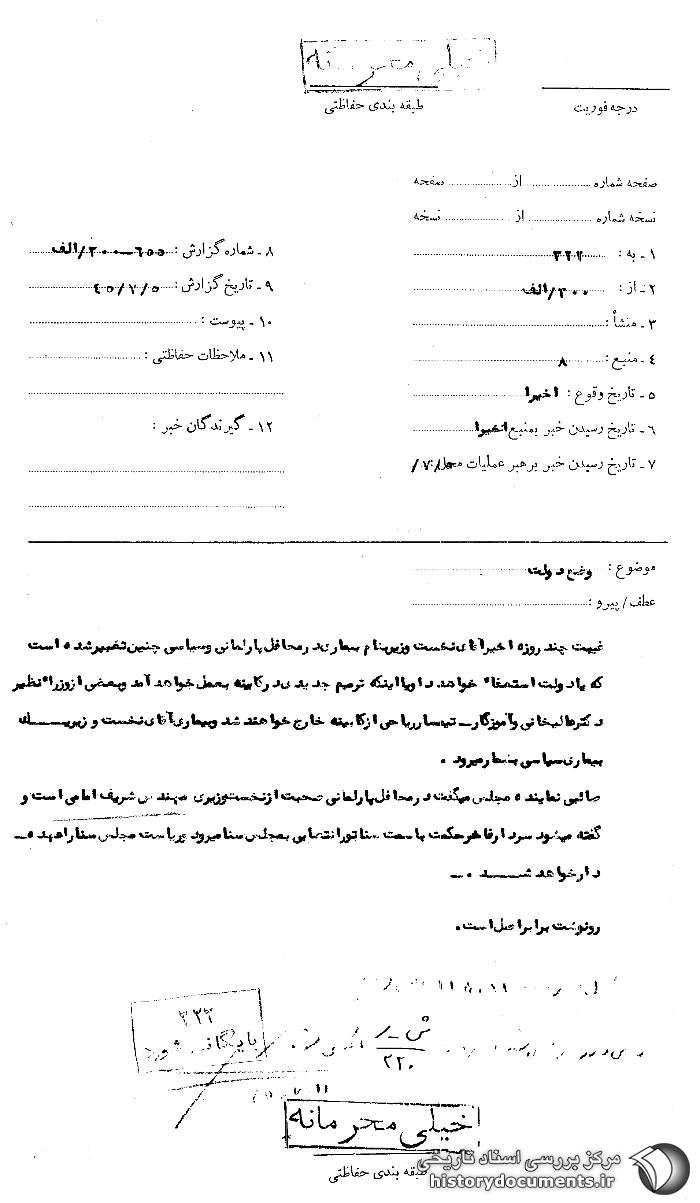 خیلی محرمانه
طبقه بندی حفاظتی
درجه فوریت
صفحه شماره از صفحه
نسخه شماره از نسخه
۱ - به : ۳۲۲
۲ - از : ۳۰۰/الف
۳ - منشأ :
۴ - منبع : ۸
۵ - تاریخ وقوع : اخیرا
۶ - تاریخ رسیدن خبر بمنبع اخیرا
۷ - تاریخ رسیدن خبر برهبر عملیات محل :
۸ - شماره گزارش :
۹ - تاریخ گزارش : ۴۵/۷/۵
۱۰ - پیوست :
۱۱ - ملاحظات حفاظتی :
۱۲ - گیرندگان خبر :
موضوع : وضع دولت
عطف/پیرو :
غیبت چند روزه اخیر آقای نخست وزیر بنام بیماری در محافل پارلمانی و سیاسی چنین تعبیر شده است
که یا دولت استعفاء خواهد داد یا اینکه ترمیم جدیدی در کابینه بعمل خواهد آمد و بعضی از وزراء نظیر
دکتر عالیخانی و آموزگار ـ تیمسار ریاحی از کابینه خارج خواهند شد و بیماری آقای نخست وزیر یک
بیماری سیاسی بشمار میرود .
صائبی نماینده مجلس میگفت در محافل پارلمانی صحبت از نخست وزیری مهندس شریف امامی است و
گفته میشود سردار فاخر حکمت باسمت سناتور انتصابی بمجلس سنا میرود و ریاست مجلس سنا را عهده ـ
دار خواهد شد .ـ
رونوشت برابر اصل است.
۳۲۲
بایگانی شود
۲۲۰
۱۱
خیلی محرمانه
طبقه بندی حفاظتی
مرکز بررسی اسناد تاریخی
historydocuments.ir